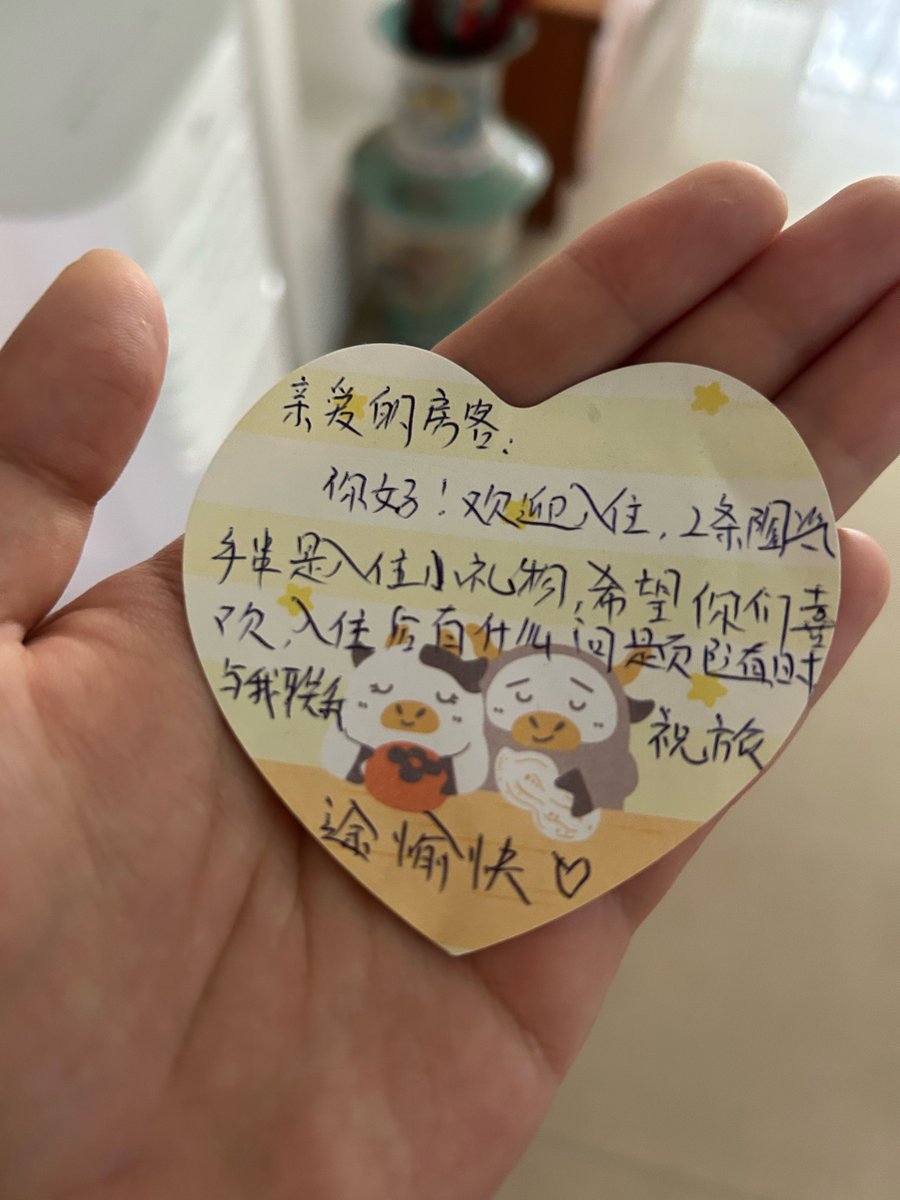 亲爱的房客:
你好!欢迎入住,2条陶瓷
手串是入住小礼物,希望你们喜
欢,入住后有什么问题随时
与我联系 祝旅
途愉快♡